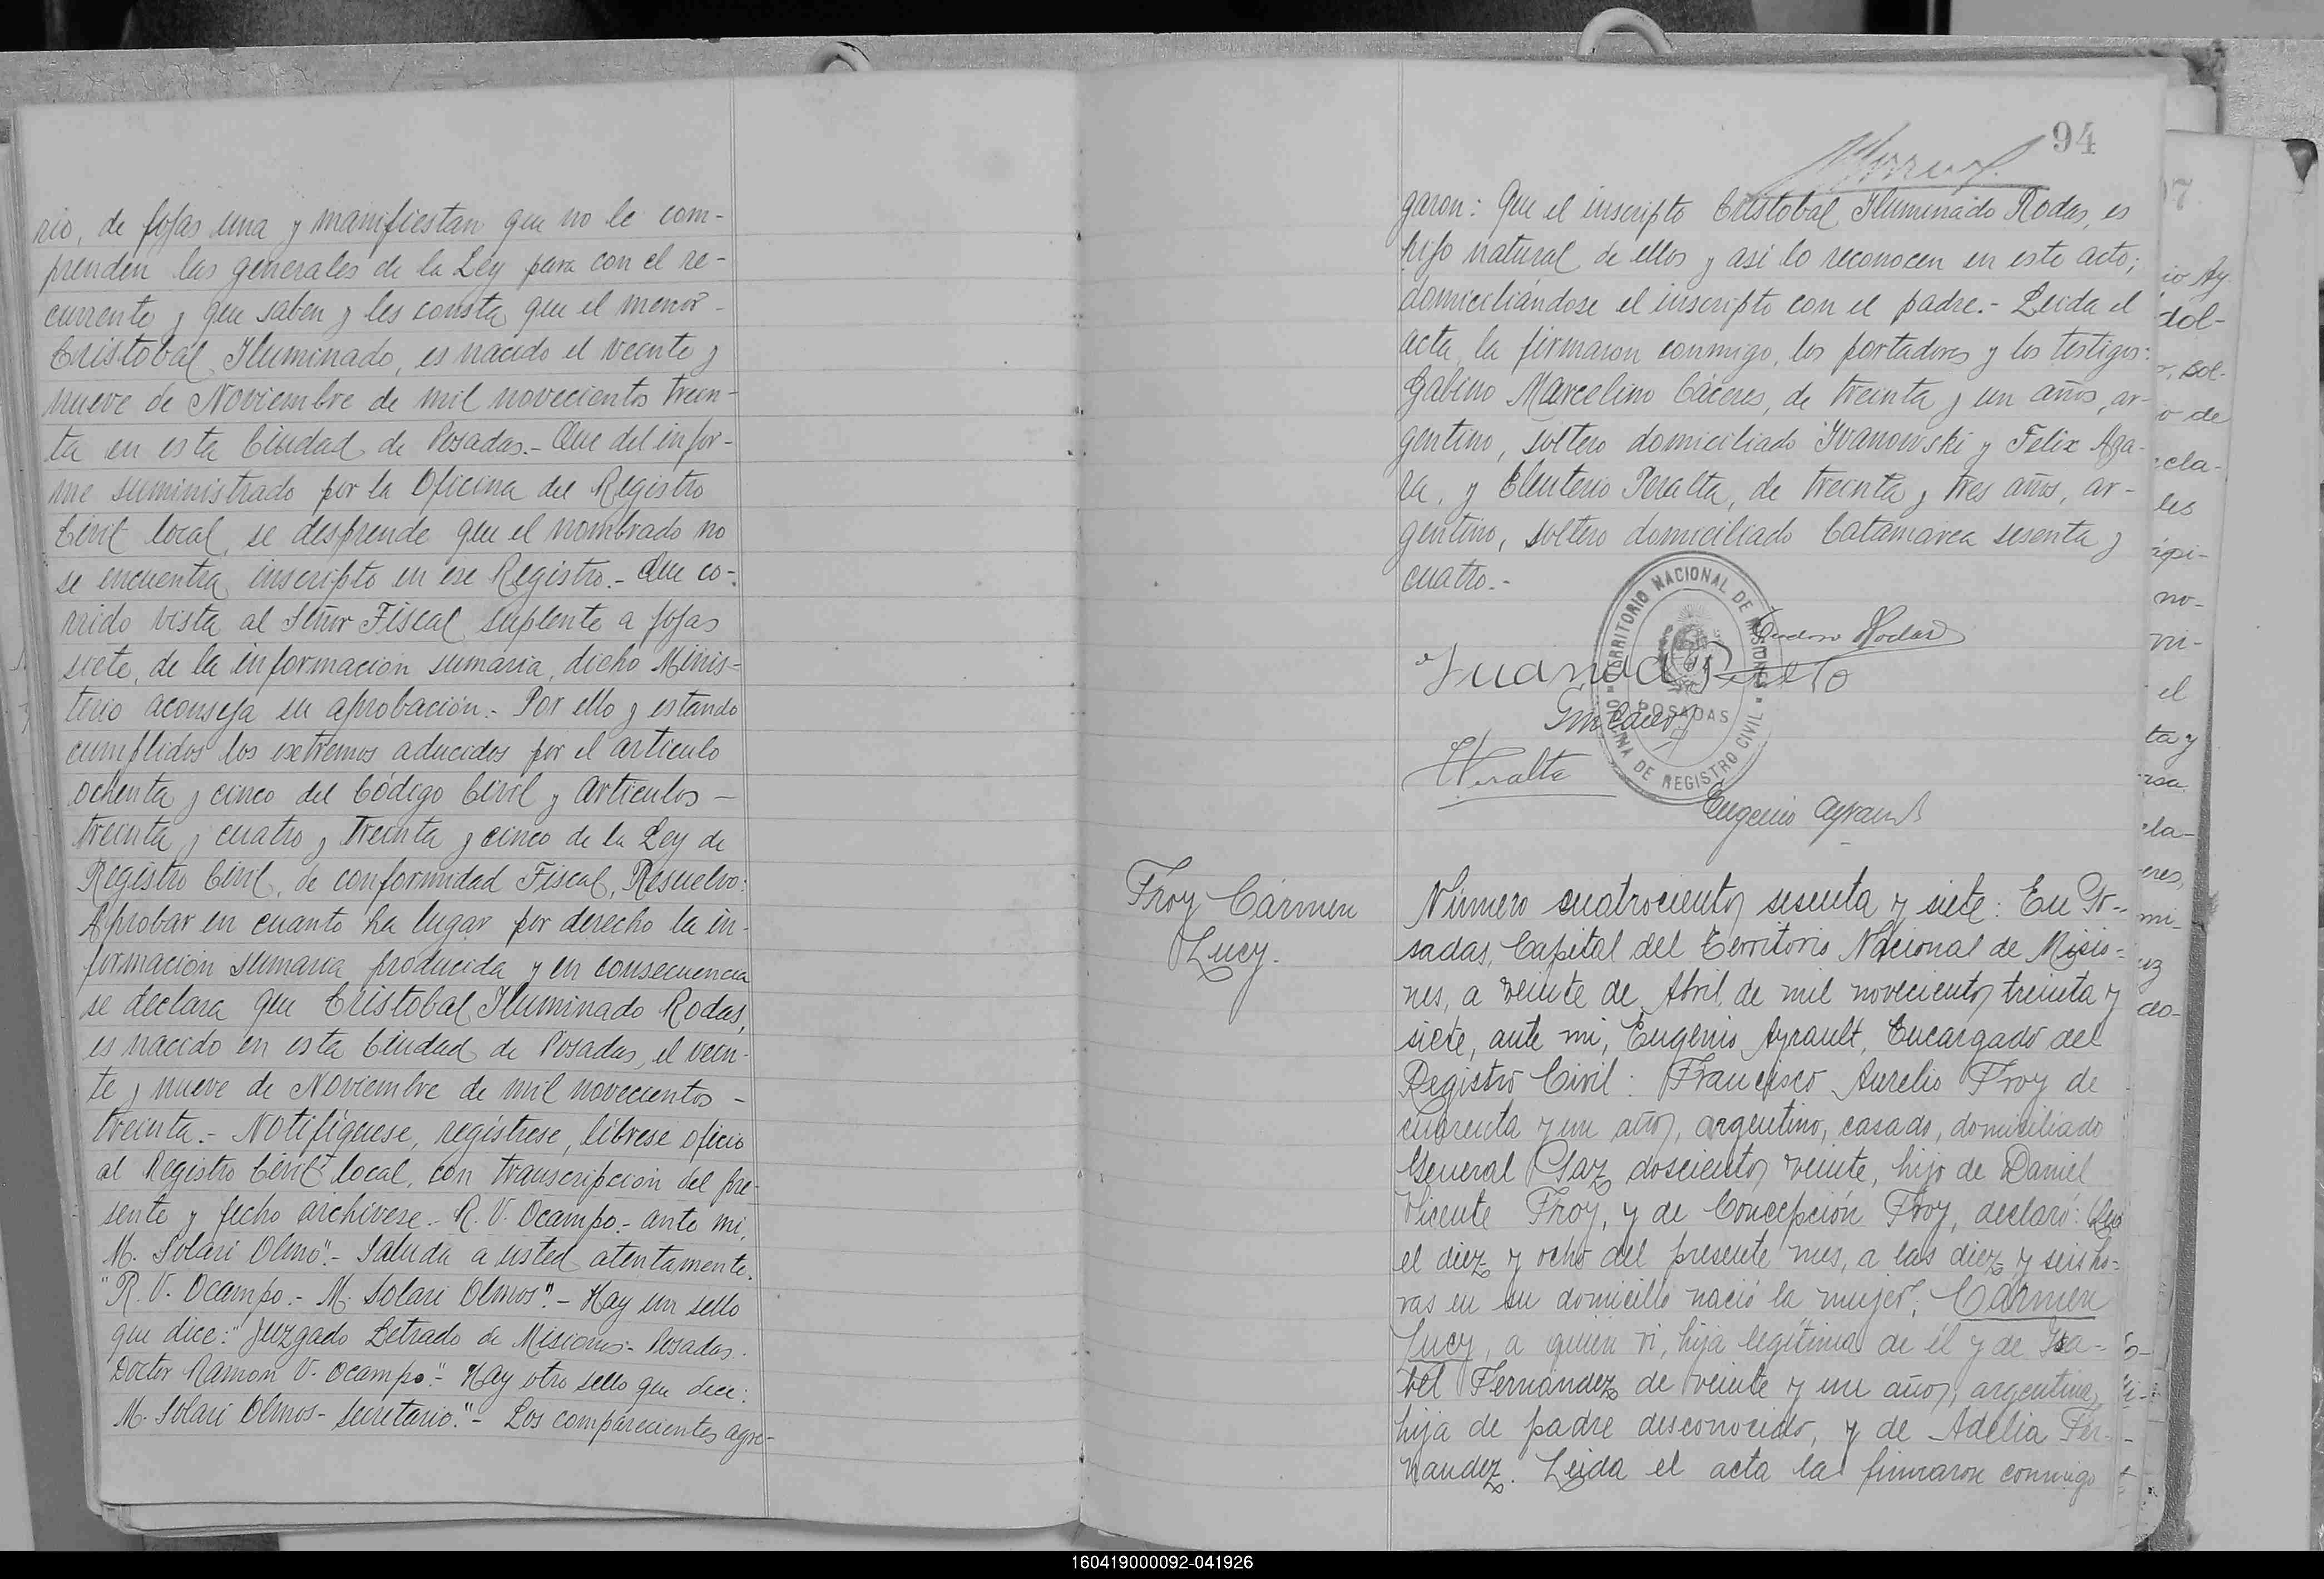 rio, de fojas una y manifiestan que no le com-
prenden las generales de la Ley para con el re-
currente y que saben y les consta que el menor -
Cristobal Iluminado, es nacido el veinte y
nueve de Noviembre de mil novecientos trein-
ta en esta Ciudad de Posadas.- Que del infor-
me suministrado por la Oficina del Registro
Civil local, se desprende que el nombrado no
se encuentra inscripto en ese Registro.- Que co-
rrido vista al Señor Fiscal suplente a fojas
siete, de la información sumaria, dicho Minis-
terio aconseja su aprobación.- Por ello y estando
cumplidos los extremos aducidos por el artículo
ochenta y cinco del Código Civil y artículos -
treinta y cuatro y treinta y cinco de la Ley de
Registro Civil, de conformidad Fiscal, Resuelvo:
Aprobar en cuanto ha lugar por derecho la in-
formación sumaria producida y en consecuencia
se declara que Cristobal Iluminado Rodas,
es nacido en esta Ciudad de Posadas, el vein-
te y nueve de Noviembre de mil novecientos -
treinta.- Notifíquese, regístrese, líbrese oficio
al Registro Civil local, con transcripción del pre-
sente y fecho archívese.- R. V. Ocampo.- ante mi,
M. Solari Olmo".- Saluda a usted atentamente.
"R. V. Ocampo.- M. Solari Olmos".- Hay un sello
que dice: "Juzgado Letrado de Misiones- Posadas.
Doctor Ramon V. Ocampo".- Hay otro sello que dice:
M. Solari Olmos- Secretario."- Los comparecientes agre-
94
garon: Que el inscripto Cristobal Iluminado Rodas, es
hijo natural de ellos y asi lo reconocen en este acto;
domiciliándose el inscripto con el padre.- Leida el
acta la firmaron conmigo, los portadores y los testigos:
Gabino Marcelino Cáceres, de treinta y un años, ar-
gentino, soltero domiciliado Ivanowski y Felix Aza-
ra, y Eleuterio Peralta, de treinta y tres años, ar-
gentino, soltero domiciliado Catamarca sesenta y
cuatro.-
TERRITORIO NACIONAL DE MISIONES
OFICINA DE REGISTRO CIVIL
POSADAS
Rodas
Juana
Peralta
Eugenio Ayrault
Froy Cármen
Lucy.
Número cuatrocientos sesenta y siete: En Po-
sadas, Capital del Territorio Nacional de Misio-
nes, a veinte de Abril de mil novecientos treinta y
siete, ante mi, Eugenio Ayrault, Encargado del
Registro Civil: Francisco Aurelio Froy de
cuarenta y un años, argentino, casado, domiciliado
General Paz doscientos veinte, hijo de Daniel
Vicente Froy, y de Concepción Froy, declaró: Que
el diez y ocho del presente mes, a las diez y seis ho-
ras en su domicilio nació la mujer, Cármen
Lucy, a quien vi, hija legítima de él y de Isa-
bel Fernández de veinte y un años, argentina,
hija de padre desconocido, y de Adelia Fer-
nandez. Leida el acta la firmaron conmigo
160419000092-041926